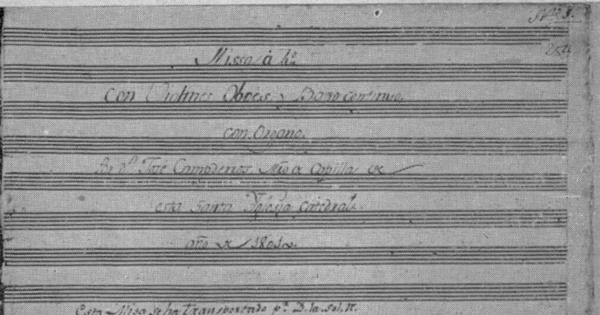 Missa à 4.º
Con Violines Oboes, y Baxo continuo,
con Organo.
Jose Campderros Mro de Capilla de
esta Santa Yglesia Catedral
año de 1801
Esta Misa se ha transportado p.ª D. la, sol, re.